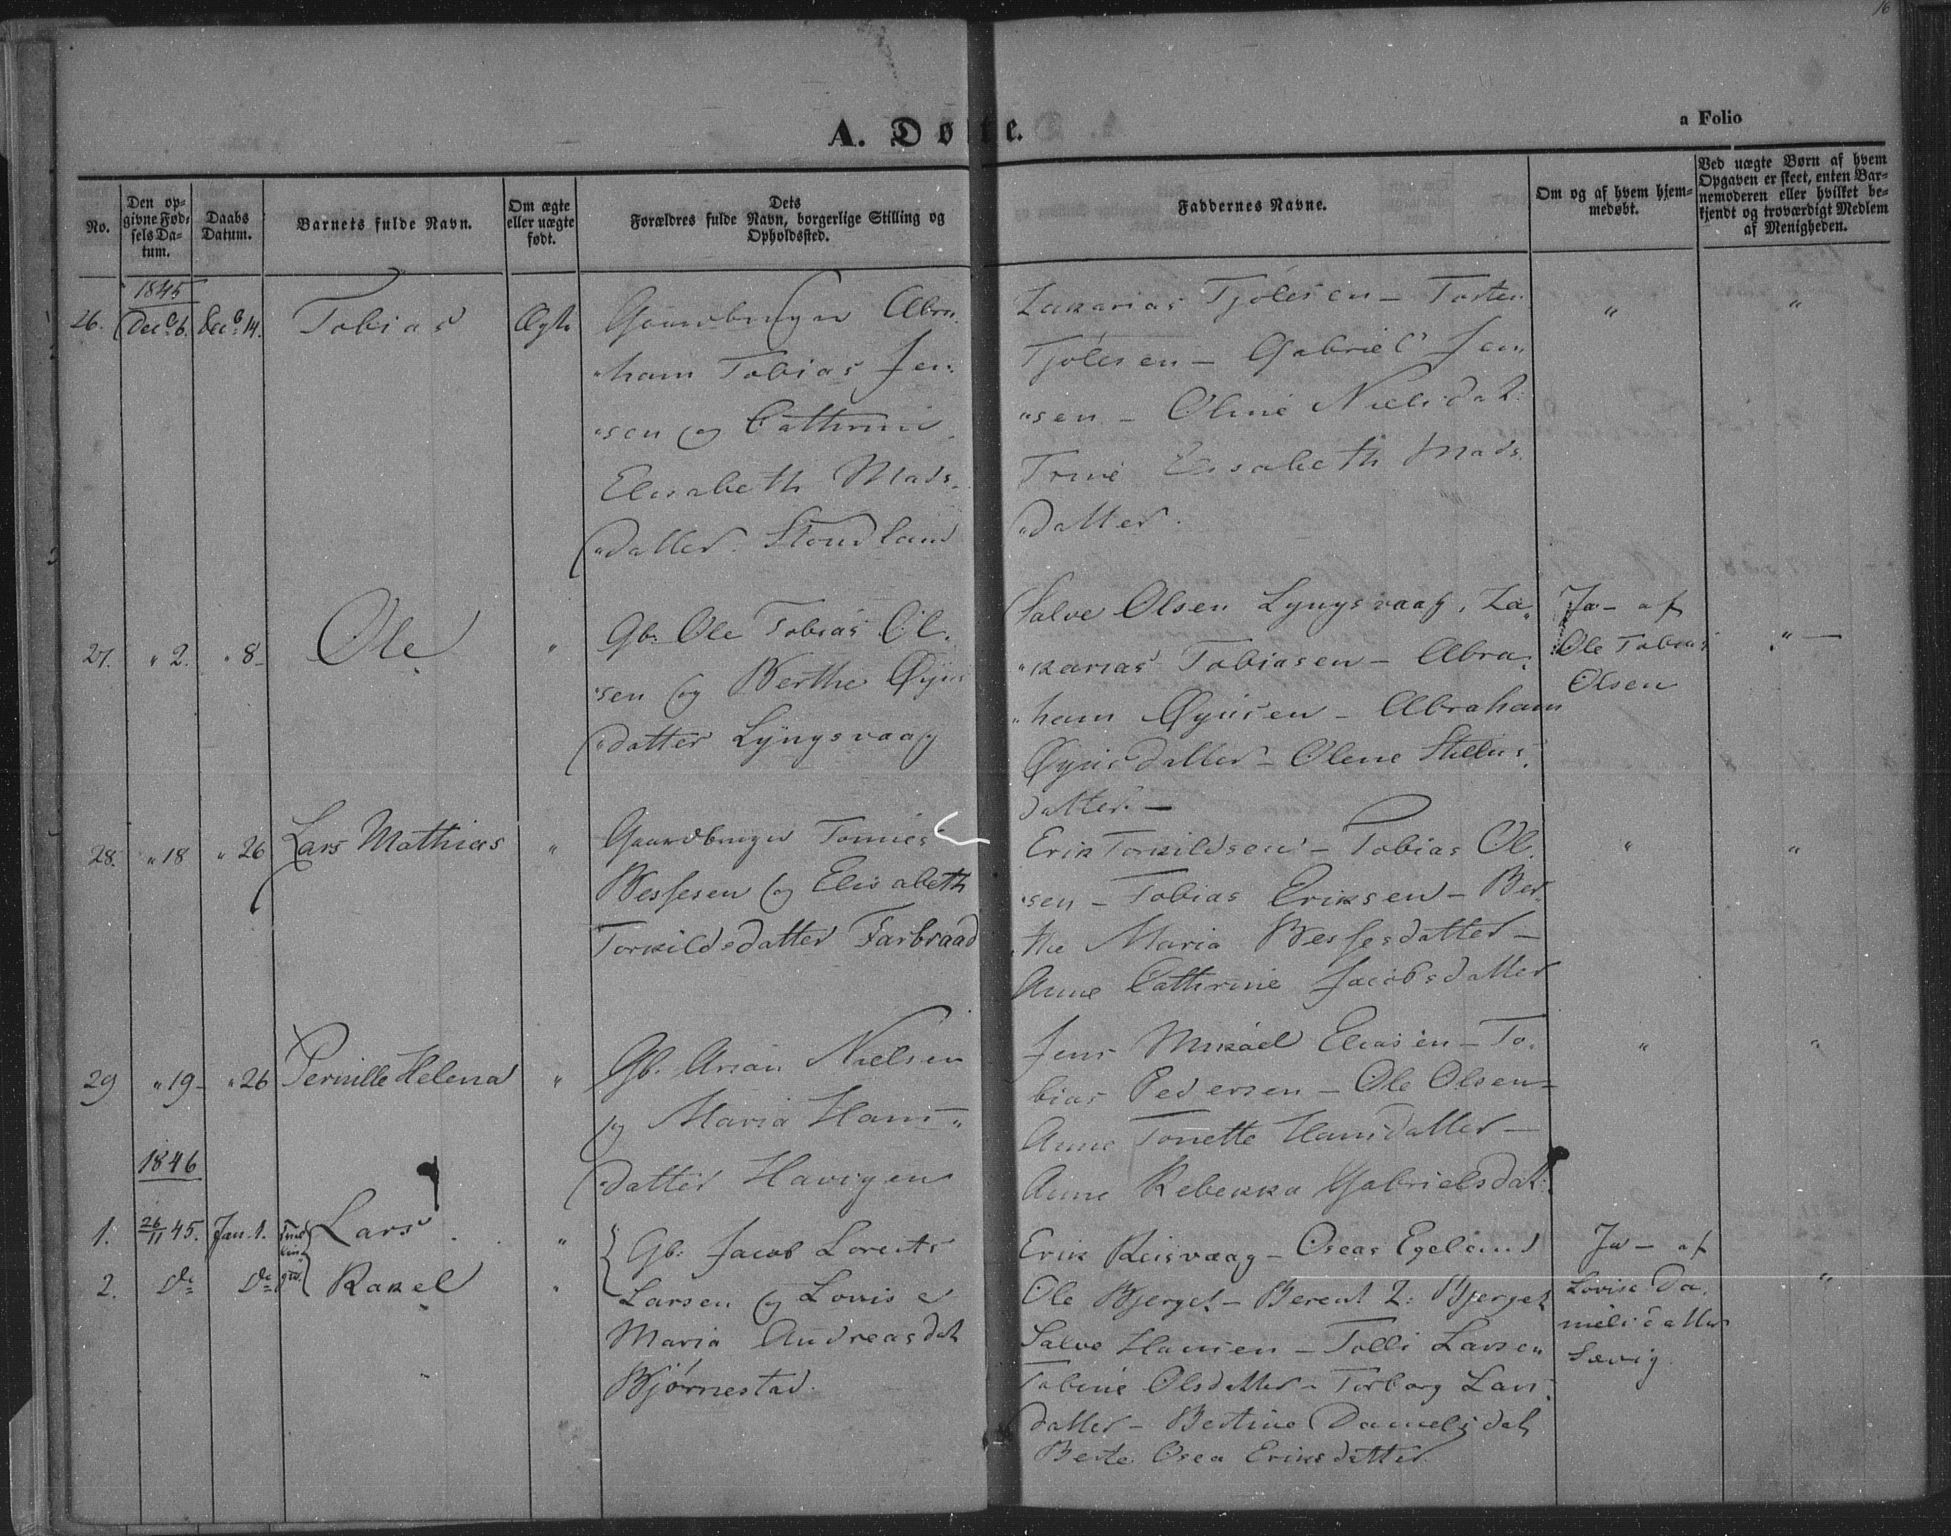 16
A. Døbte.
a Folio
No.
Den op-
givne Fød-
sels Da-
tum.
Daabs
Datum.
Barnets fulde Navn.
Om ægte
eller uægte
født.
Dets
Forældres fulde Navn, borgerlige Stilling og
Opholdssted.
Faddernes Navne.
Om og af hvem hjem-
medøbt.
Ved uægte Børn af hvem
Opgaven er skeet, enten Bar-
nemoderen eller hvilket be-
kjendt og troværdigt Medlem
af Menigheden.
1845
26. Decb. 6. Decb. 14. Tobias Ægte
Gaardbruger Abra-
"ham Tobias Jen-
"sen og Cathrine
Elisabeth Mads-
"datter Stoudland
Zakarias Tjølesen – Tosten
Tjølesen – Gabriel Jen-
"sen – Oline Nielsdat:
Trine Elisabeth Mads-
"datter.
" "
27. " 2. " 8- Ole "
Gb: Ole Tobias Ol-
"sen og Berthe Øyus
"datter Lyngsvaag
Salve Olsen Lyngsvaag, Za-
"karias Tobiasen – Abra-
"ham Øyusen – Abraham
Øyusdatter – Olene Stilles-
datter. –
Ja – af
Ole Tobias
Olsen
" –
28. " 18 " 26 Lars Mathias "
Gaardbruger Tønnes
Bessesen og Elisabeth
Torkildsdatter Farbraad
Erik Torkildsen – Tobias Ol-
"sen – Tobias Eriksen – Ber-
"the Maria Bessesdatter –
Anne Cathrine Jacobsdatter
" "
29 " 19- " 26 Pernille Helena "
Gb. Arian Nielsen
og Maria Hans-
"datter Havigen
Jens Mikael Eliasen – To-
bias Pedersen – Ole Olsen –
Anne Tonette Hansdatter –
Anne Rebekka Gabrielsdat:
" "
1846
1. 26/11 45. Jan. 1. Lars "
2. Do Do Rakel "
Gb: Jacob Lorents
Larsen og Lovise
Maria Andreasdat
Bjørnestad.
Erik Reisvaag – Oseas Egeland
Ole Bjerget – Berent L: Bjerget
Salve Hansen – Tolli Larsen
Tobine Olsdatter – Torborg Lars-
datter – Bertine Danielsdat
Berte Osea Eriksdatter
Ja – af
Lovise Da-
nielsdatter
Sævig.
"